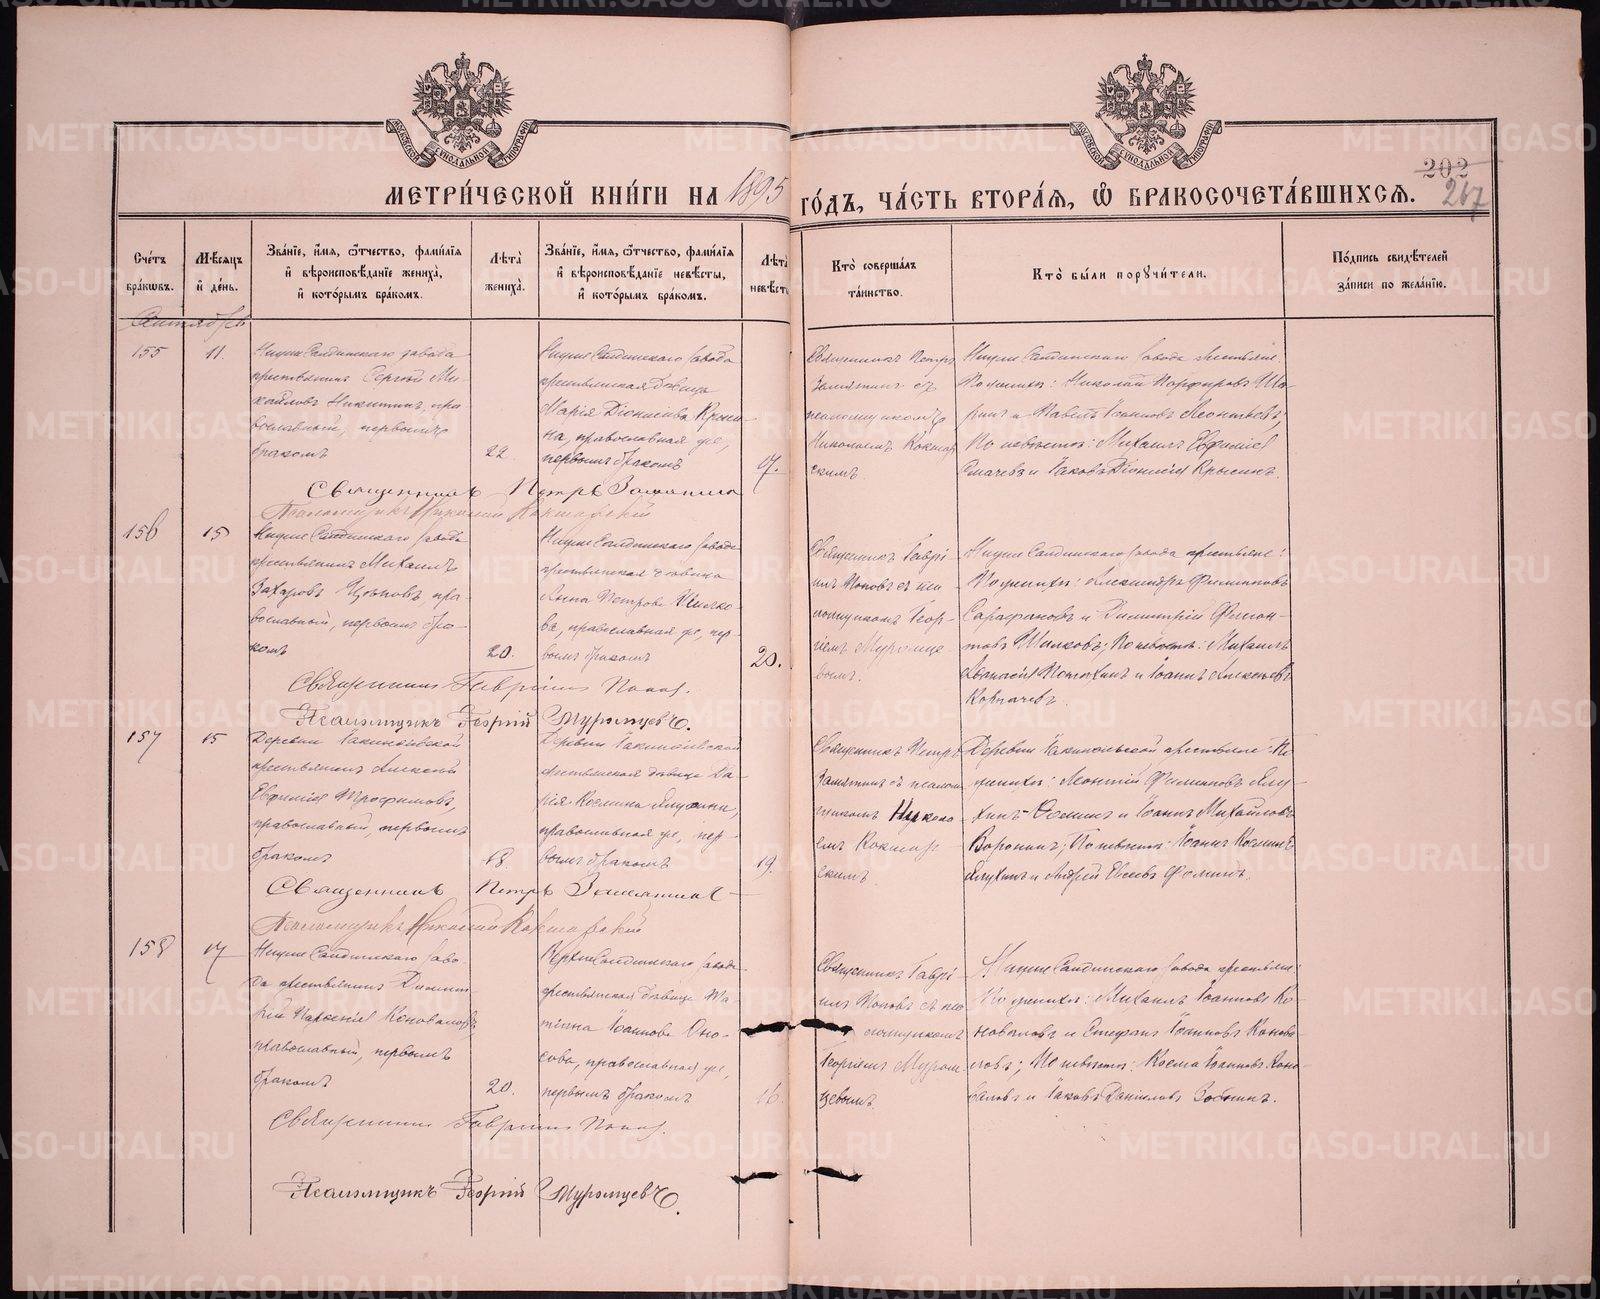 МОСКОВСКОЙ СѴНОДАЛЬНОЙ ТИПОГРАФІИ
МОСКОВСКОЙ СѴНОДАЛЬНОЙ ТИПОГРАФІИ
202
267
МЕТРИ́ЧЕСКОЙ КНИ́ГИ НА 1895 ГО́ДЪ, ЧА́СТЬ ВТОРА́Я, Ѡ БРАКОСОЧЕТА́ВШИХСЯ.
Сче́тъ бра́кѡвъ.
Мѣ́сяцъ и́ де́нь.
Зва́нїе, и҆́мя, ѻ҆́тчество, фами́лїя и҆ вѣроисповѣ́данїе жениха̀, и҆ кото́рымъ бра́комъ.
Лѣта̀ жениха̀.
Зва́нїе, и҆́мя, ѻ҆́тчество, фами́лїя и҆ вѣроисповѣ́данїе невѣ́сты, и҆ кото́рымъ бра́комъ.
Лѣта̀ невѣ́сты
Кто̀ соверша́лъ та́инство.
Кто̀ бы́ли порꙋчи́тели.
По́дпись свидѣ́телей за́писи по жела́нїю.
Сентябрь
155
11.
Нижне Салдинскаго завода
крестьянинъ Сергей Ми-
хайловъ Никитинъ, пра-
вославный, первымъ
бракомъ
22.
Нижне Салдинскаго завода
крестьянская дѣвица
Марія Діонисіева Крыси-
на, православная же,
первымъ бракомъ
17.
Священникъ Петръ
Замятинъ съ
псаломщикомъ
Николаемъ Кокшар
скимъ.
Нижне Салдинскаго завода крестьяне:
По женихѣ: Николай Порфировъ Ша-
ринъ и Павелъ Іоанновъ Леонтьевъ;
По невѣстѣ: Михаилъ Евфимiев
и Іаковъ Діонисіевъ Крысинъ.
Священникъ Петръ Замятинъ
Псаломщикъ Николай Кокшарскій
156
15
Нижне Салдинскаго завода
крестьянинъ Михаилъ
Захаровъ пра-
вославный, первымъ бра-
комъ
20.
Нижне Салдинскаго завода
крестьянская дѣвица
Анна Петрова Шилко-
ва, православная же, пер-
вымъ бракомъ
20.
Священникъ Гаврі-
илъ Поповъ съ пса
ломщикомъ Геор-
гіемъ Муромце
вымъ.
Нижне Салдинскаго завода крестьяне:
По женихѣ: Александръ Филипповъ
Сарафановъ и Димитрій
Шилковъ; По невѣстѣ: Михаилъ
Потехинъ и Іоаннъ Алексѣевъ
Священникъ Гавріилъ Поповъ.
Псаломщикъ Георгій Муромцевъ.
157
15
Деревни
крестьянинъ Алексѣй
Евфиміевъ Трофимовъ,
православный, первымъ
бракомъ
18.
Деревни
крестьянская дѣвица Да-
рія Космина Ялухина,
православная же, пер-
вымъ бракомъ
19.
Священникъ Петръ
Замятинъ съ псалом
щикомъ Никола-
емъ Кокшар
скимъ.
Деревни крестьяне: По
женихѣ: Леонтій Филипповъ Ялу-
хинъ и Іоаннъ Михайловъ
Воронинъ; По невѣстѣ: Іоаннъ Косминъ
Ялухинъ и Андрей Евсевъ Фоминъ.
Священникъ Петръ Замятинъ
Псаломщикъ Николай Кокшарскій
158
17
Нижне Салдинскаго заво-
да крестьянинъ Димит-
рій Коноваловъ,
православный, первымъ
бракомъ
20.
Верхне Салдинскаго завода
крестьянская дѣвица Та-
тіана Іоаннова Оно-
сова, православная же,
первымъ бракомъ
16.
Священникъ Гаврі-
илъ Поповъ съ пса
ломщикомъ
Георгіемъ Муром-
цевымъ.
Нижне Салдинскаго завода крестьяне:
По женихѣ: Михаилъ Іоанновъ Ко-
новаловъ и Стефанъ Іоанновъ Конова-
ловъ; По невѣстѣ: Косма Іоанновъ Коно-
валовъ и Іаковъ Даніиловъ Зобнинъ.
Священникъ Гавріилъ Поповъ.
Псаломщикъ Георгій Муромцевъ.
METRIKI.GASO-URAL.RU